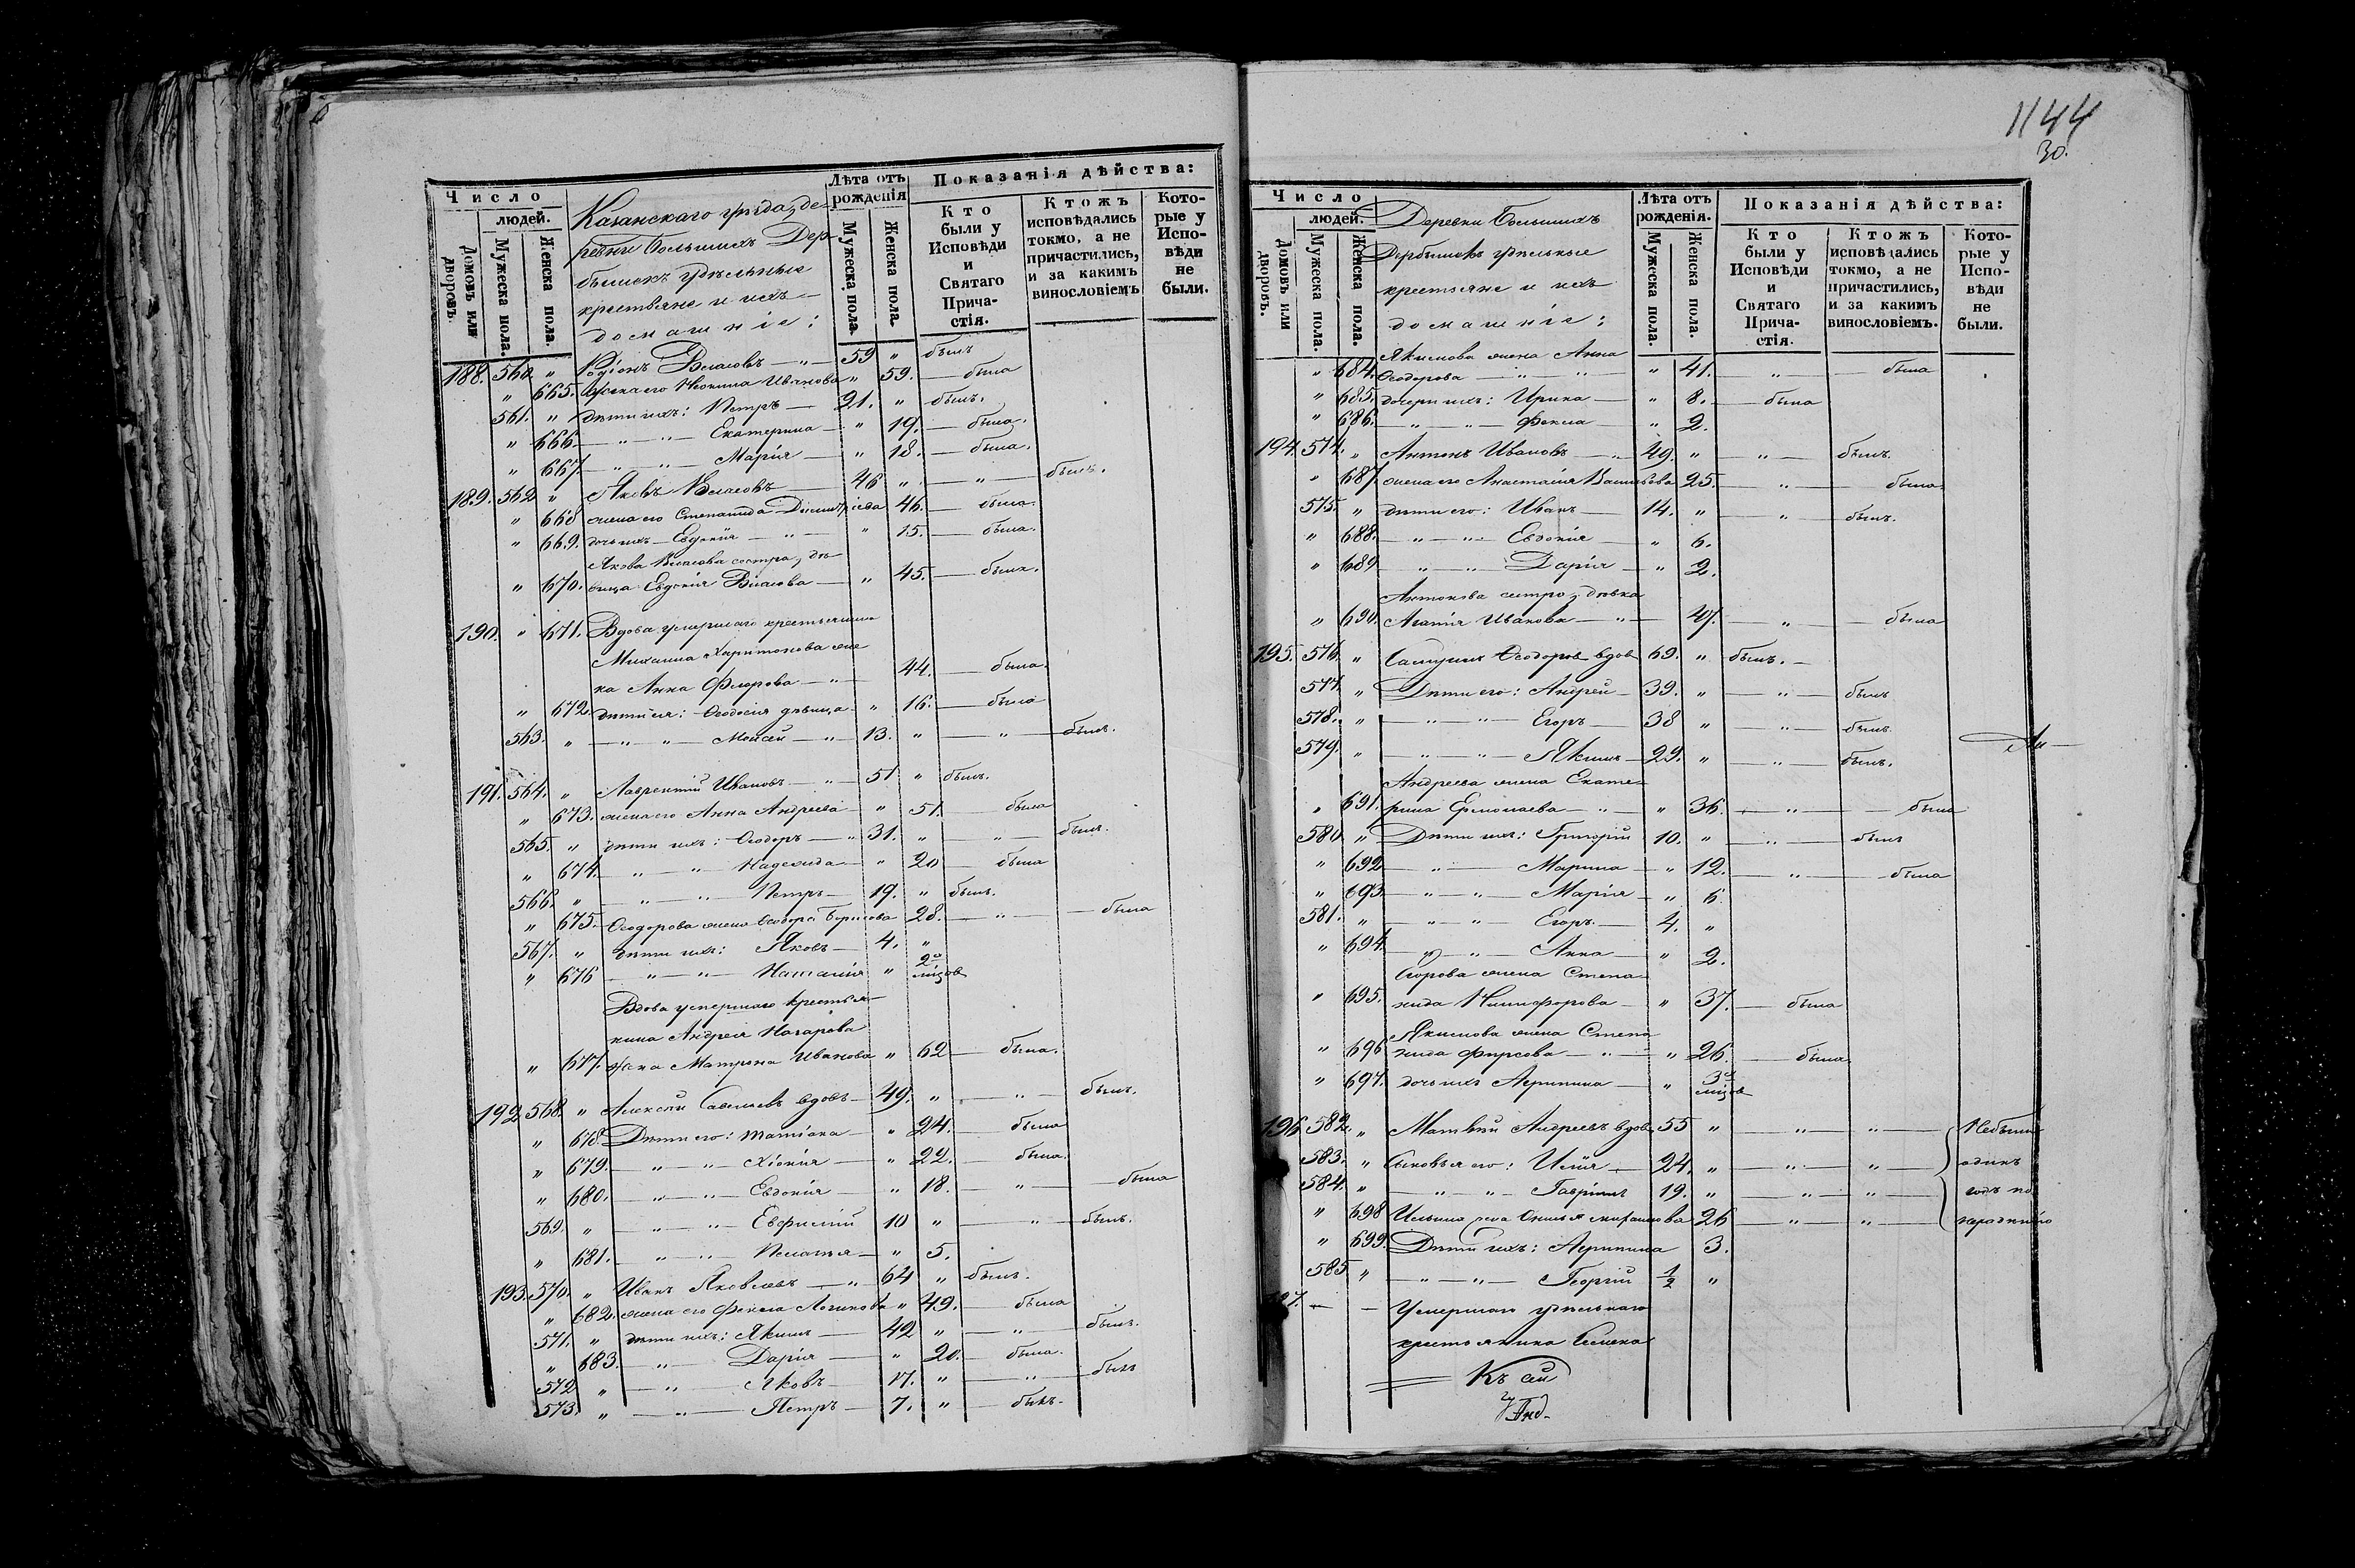 Число
людей.
Домовъ или дворовъ.
Мужеска пола.
Женска пола.
Казанскаго уѣзда, де-
ревни Большихъ Дер-
бышекъ удѣльные
крестьяне и ихъ
домашніе:
Лѣта отъ рожденія
Мужеска пола.
Женска пола.
Показанія дѣйства:
Кто были у Исповѣди и Святаго Прича-стія.
Ктожъ исповѣдались токмо, а не причастились, и за какимъ винословіемъ
Кото-рые у Испо-вѣди не были.
188. 560. " Родіонъ Власовъ — " — 59 " былъ
" 665. Жена его Ивановa " 59. — была
561. " дѣти ихъ: Петръ — 21. " былъ.
" 666. — " — " — Екатерина — " 19. — была.
" 667. — " — " — Марія — " 18. — была.
189. 562 " Яковъ Власовъ — 46 " — " — былъ.
" 668 жена его Степанида Дмитріева 46. — была.
" 669. дочь ихъ — Евдокія — " — " 15. — была.
Якова Власова сестра, дѣ-
" 670. вица Евдокія Власова — " 45. — была.
190. " 671. Вдова умершаго крестьянина
Михаила Харитонова же
на Анна Флорова — " — 44. — была.
" 672. дѣти ея: Ѳеодосія дѣвица " 16. — была
563. " — " — " — Моисей — " — 13. " — " — былъ.
191. 564. " Лаврентій Ивановъ — " — 51 " былъ.
" 673. жена его Анна Андреева — " 51. — была
565. " дѣти ихъ: Ѳеодоръ — " 31. " — " — былъ.
" 674. — " — " — Надежда — " 20 — была
566. " — " — " — Петръ — 19. " былъ.
" 675. Ѳеодорова жена Ѳеодора Борисова 28. — " — была
567. " дѣти ихъ: Яковъ — 4. "
" 676 — " — " — Наталія " 2 мѣсяцовъ
Вдова умершаго крестья-
нина Андрея Назарова
" 677. жена Матрена Иванова " 62 — была.
192 568. " Алексѣй Савельевъ вдовъ — 49. " — " — былъ.
" 678. Дѣти его: Татіана — " 24. — была
" 679. — " — " — Хіонія — " 22. — была.
" 680. — " — " — Евдокія — " 18. — " — была
569. " — " — " — Евфимій 10 " — " — былъ.
" 681. — " — " — Пелагья — " 5.
193. 570. " Иванъ Яковлевъ — " 64 " былъ.
" 682. жена его Фекла Логинова " 49. — была
571. " дѣти ихъ: Якимъ — 42 " — " — былъ.
" 683. — " — Дарія — " 20. — была.
572 " — " — Яковъ — 17. " — " — былъ
573. " — " — Петръ — 7. " — былъ.
1144
30.
Число
людей.
Домовъ или дворовъ.
Мужеска пола.
Женска пола.
Деревни Большихъ
Дербышекъ удѣльные
крестьяне и ихъ
домашніе:
Лѣта отъ рожденія.
Мужеска пола.
Женска пола.
Показанія дѣйства:
Кто были у Исповѣди и Святаго Прича-стія.
Ктожъ исповѣдались токмо, а не причастились, и за какимъ винословіемъ.
Кото-рые у Испо-вѣди не были.
Якимова жена Анна
" 684. Ѳеодорова — " — " — " 41. — " — была
" 685. дочери ихъ: Ирина — " 8. — была
" 686. — " — " — Фекла — " 2.
194. 574. " Антонъ Ивановъ — " 49. " — " — былъ.
" 687. жена его Анастасія Васильева 25. — " — была
575. " дѣти его: Иванъ — 14. " " — былъ.
" 688. — " — " — Евдокія — " 6.
" 689 — " — " — Дарія — " 2.
Антонова сестра, дѣвка
" 690. Агафія Иванова — " — 47. — " — была
195. 576. " Самуилъ Ѳеодоровъ вдовъ 69. " былъ. —
577. " Дѣти его: Андрей — 39. " — " — былъ
578. " — " — " — Егоръ — 38 " — " — былъ.
579. " — " — " — Якимъ — 29. " — " — былъ.
Андреева жена Екате-
" 691. рина Ермолаева — " — " 36. — " — была
580 " Дѣти ихъ: Григорій 10. " — " — былъ
" 692 — " — Марина — " 12. — " — была
" 693. — " — " — Марія — " 6.
581. " — " — " — Егоръ — 4. "
" 694. — " — " — Анна — " 2.
Егорова жена Степа-
" 695. нида Никифорова — " 37. — была
Якимова жена Степа
" 696 нида Фирсова — " — " 26. — была.
" 697. дочь ихъ Агрипина — " 3 мѣсяцовъ
196 582. " Матвѣй Андреевъ вдовъ 55 " — " — " — Небыли
583. " Сыновья его: Илія — 24. " — " — " — одинъ
584. " — " — " — Гавріилъ 19. " — " — " — годъ по
" 698 Ильина жена 26 — " — " — нерадѣнію
" 699. Дѣти ихъ: Агрипина 3.
585 " — " — " — Георгій 1/2 "
197. — — Умершаго удѣльнаго
крестьянина Семена
Къ сей